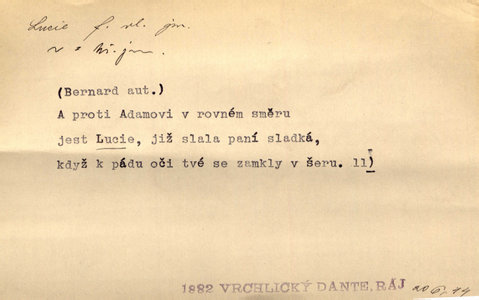 Lucie f. vl. jm.
v
(Bernard aut.)
A proti Adamovi v rovném směru
jest Lucie, již slala paní sladká,
když k pádu oči tvé se zamkly v šeru. ll)
1882 VRCHLICKÝ DANTE, RÁJ